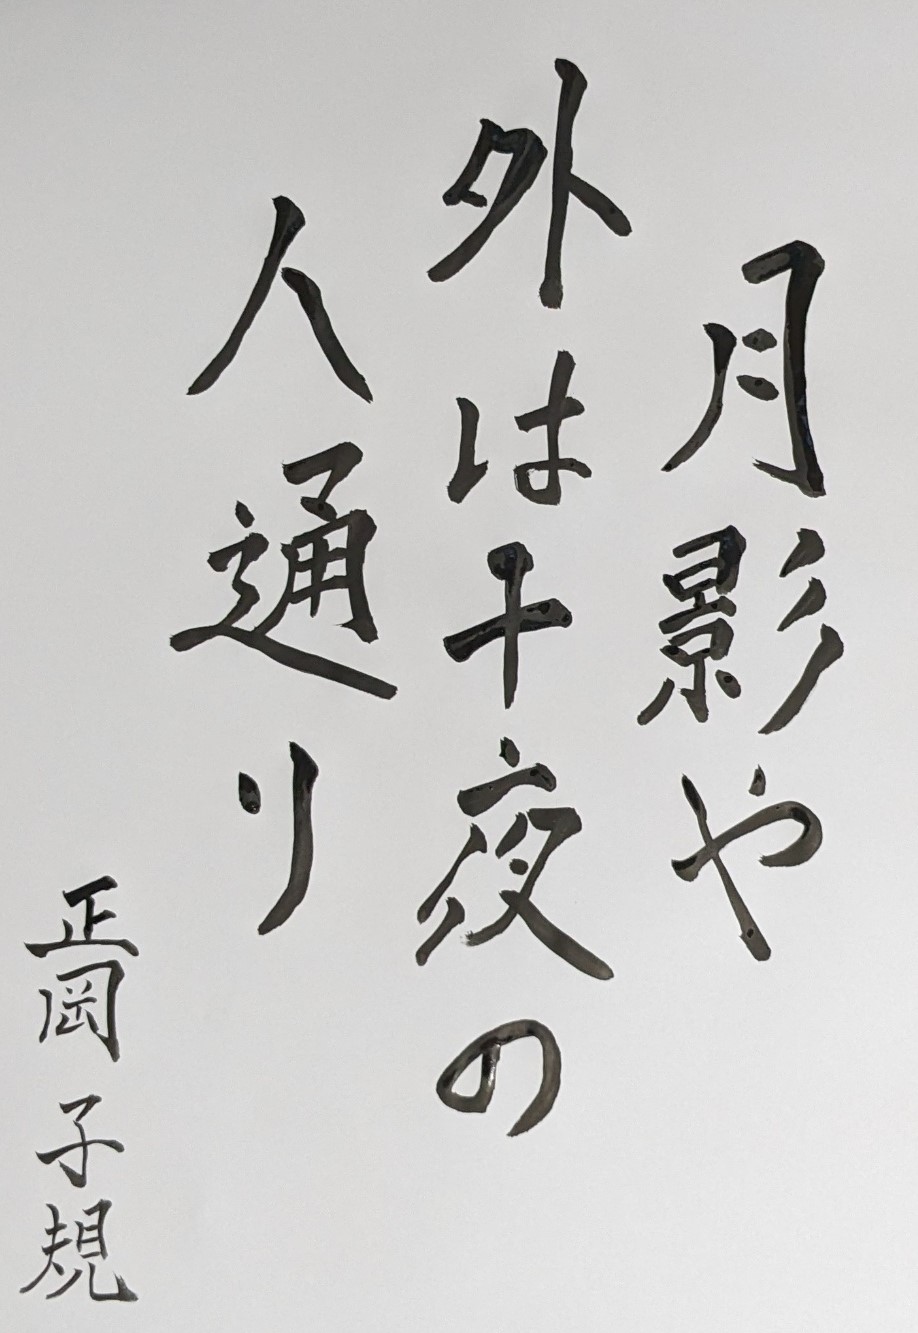 月影や
外は十夜の
人通り
正岡子規